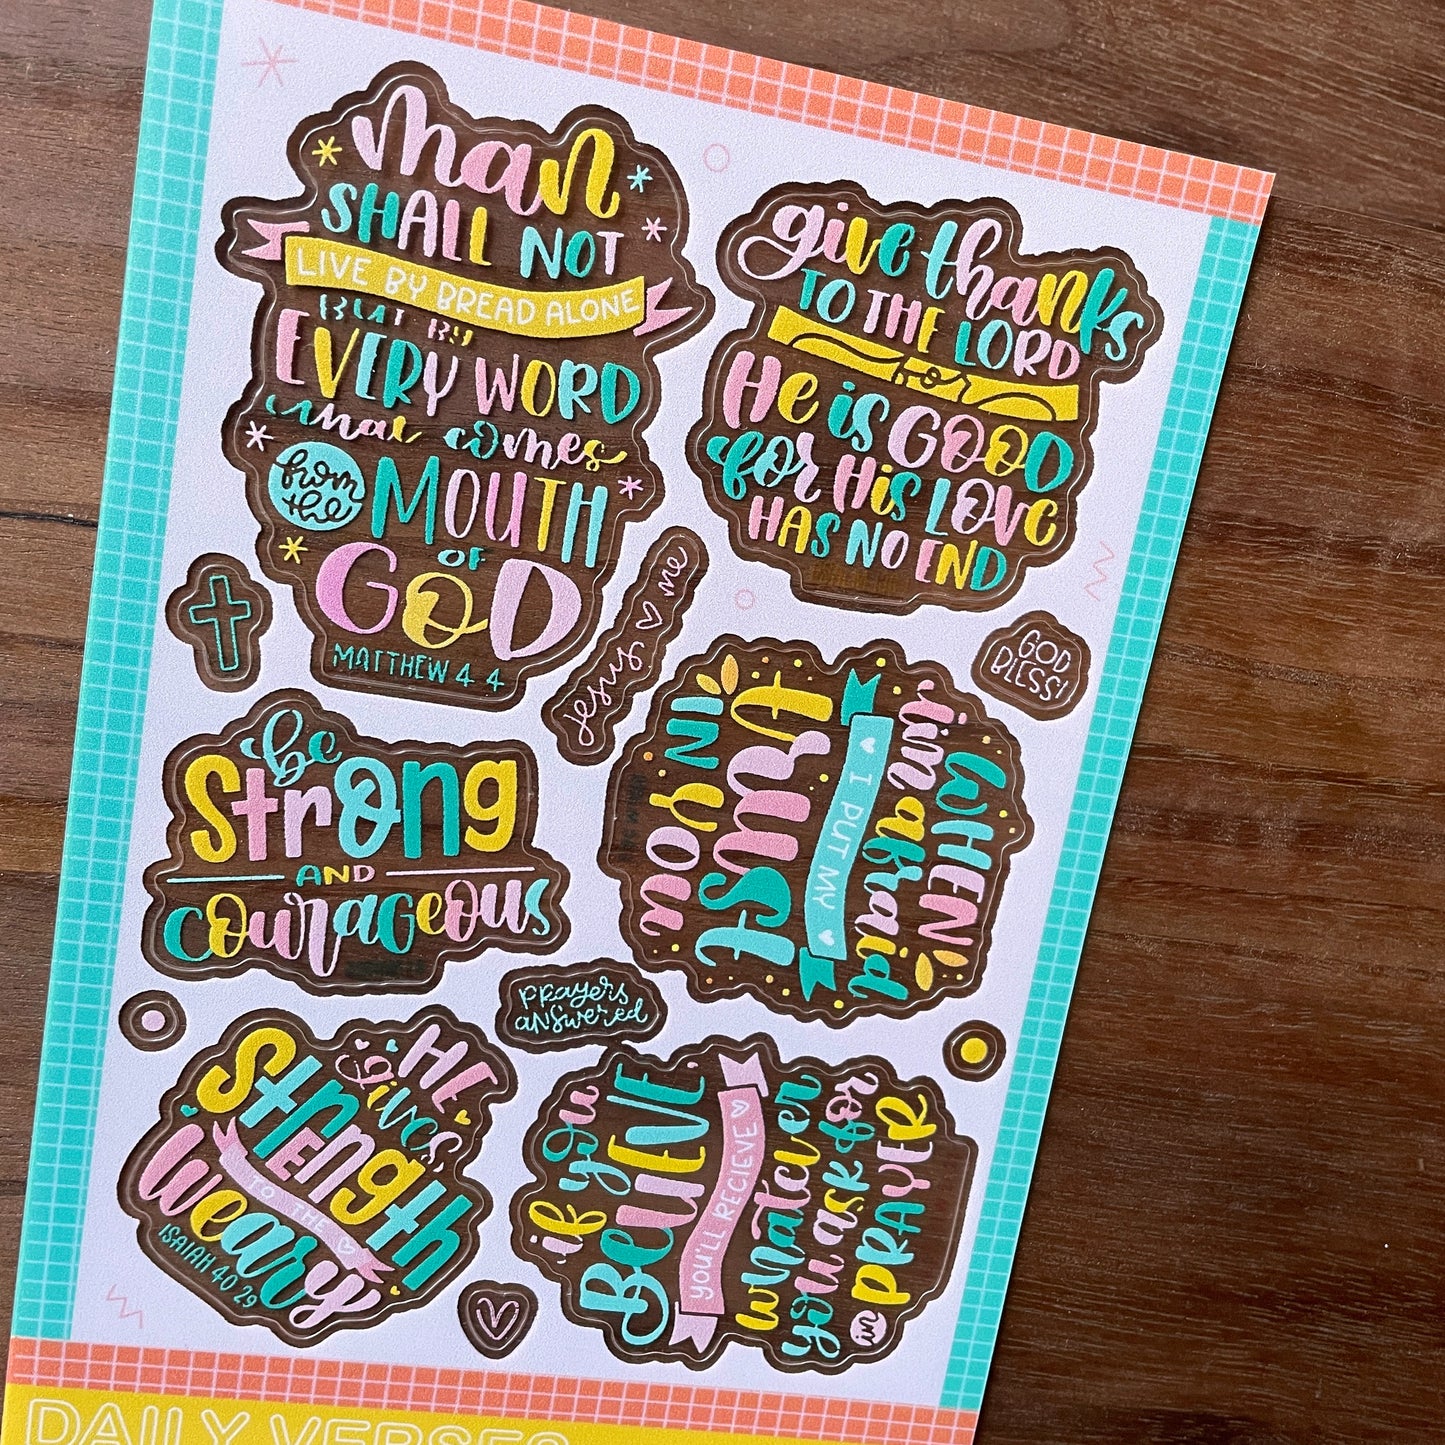 man
SHALL NOT
LIVE BY BREAD ALONE
BUT BY
EVERY WORD
that comes
from the
MOUTH
OF
GOD
MATTHEW 4 4
give thanks
TO THE LORD
for
He is GOOD
for His LOVE
HAS NO END
jesus me
GOD
BLESS!
be
Strong
AND
courageous
WHEN
im afraid
I PUT MY
trust
IN YOU
prayers
answered
HE
gives
Strength
TO THE
weary
ISAIAH 40 29
if you
BELIEVE,
YOU'LL RECIEVE
whatever
you ask for
in PRAYER
DAILY VERSES